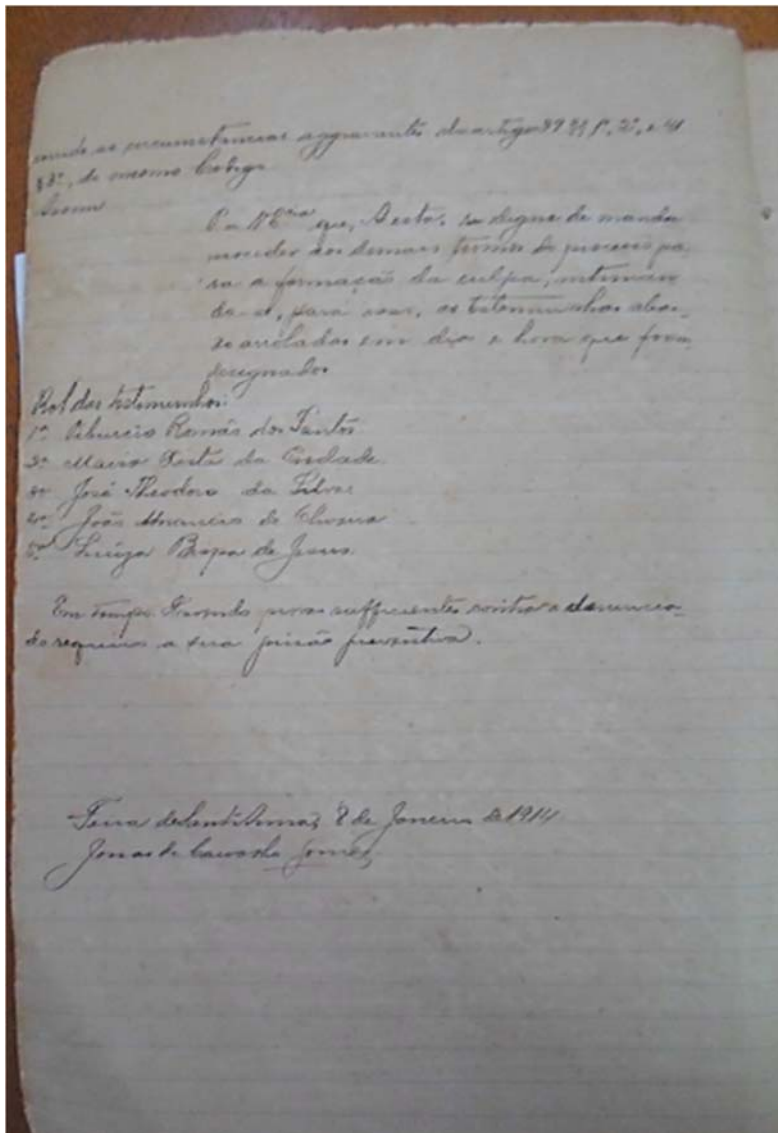 as circumstancias aggravantes do artigo 39 §§ 1º, 2º, e 41
§ 3º, do mesmo Codigo.
P. a V. Excia que, A. esta, se digne de mandar
proceder aos demais termos do processo pa-
ra a formação da culpa, intiman-
do-se, para isso, as testemunhas abai-
xo arroladas em dia e hora que fôra
designados
Rol das testemunhas:
1ª Tiburcio Romão dos Santos
2ª da Trindade
3ª José Theodoro da Silva
4ª João de Oliveira
5ª de Jesus
Em tempo: Havendo provas sufficientes contra o denuncia-
do requeiro a sua prisão preventiva.
Feira de Sant'Anna, 8 de Janeiro de 1914
Gomes